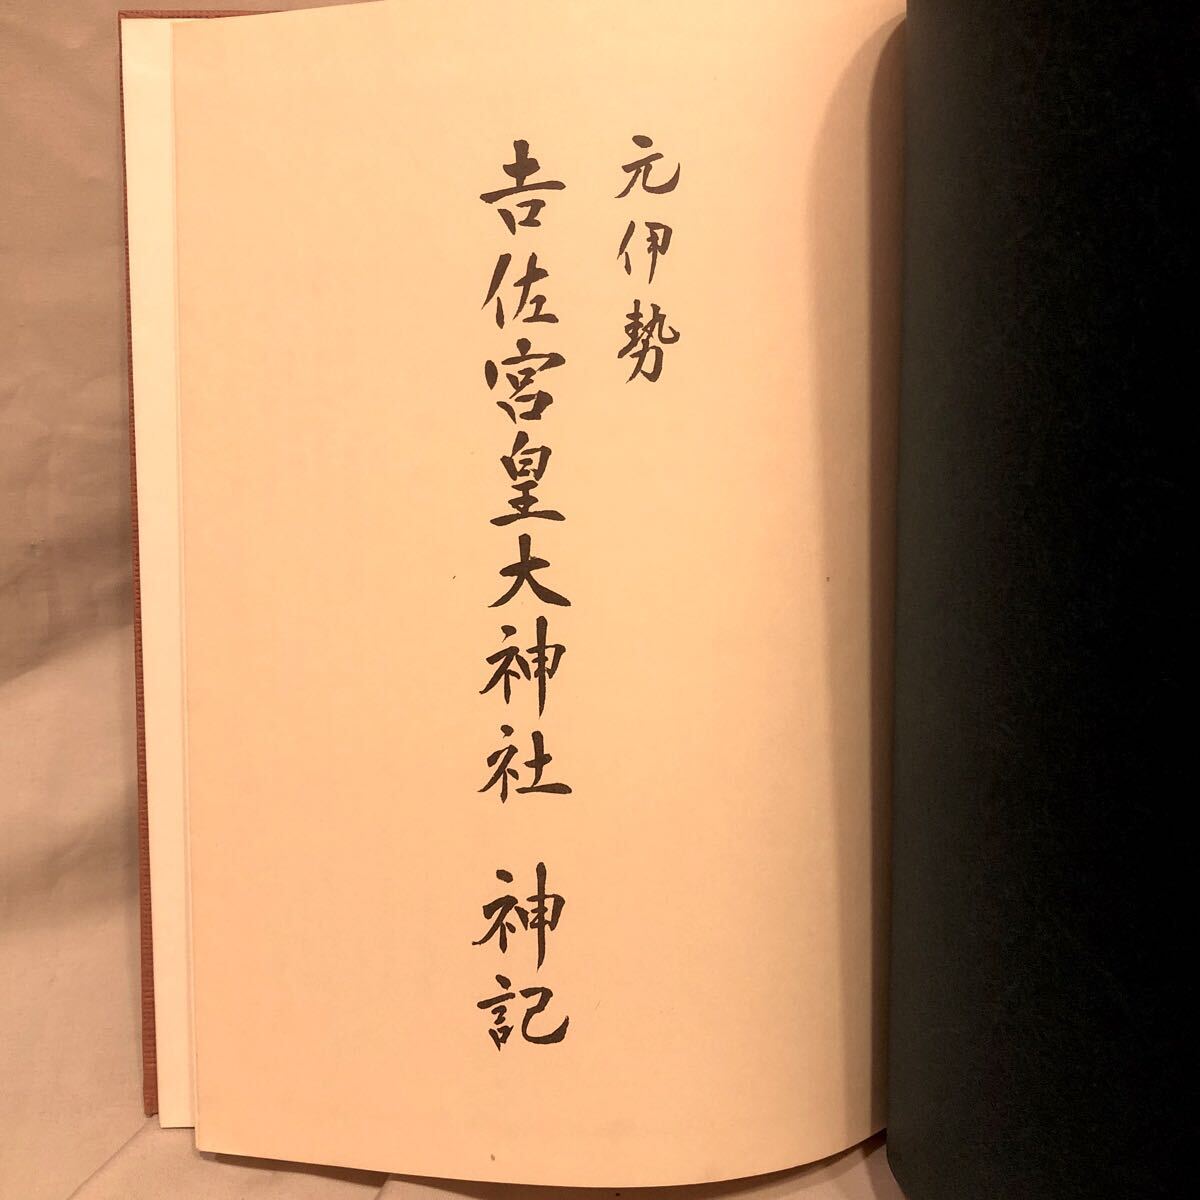 元伊勢
𠮷佐宮皇大神社 神記